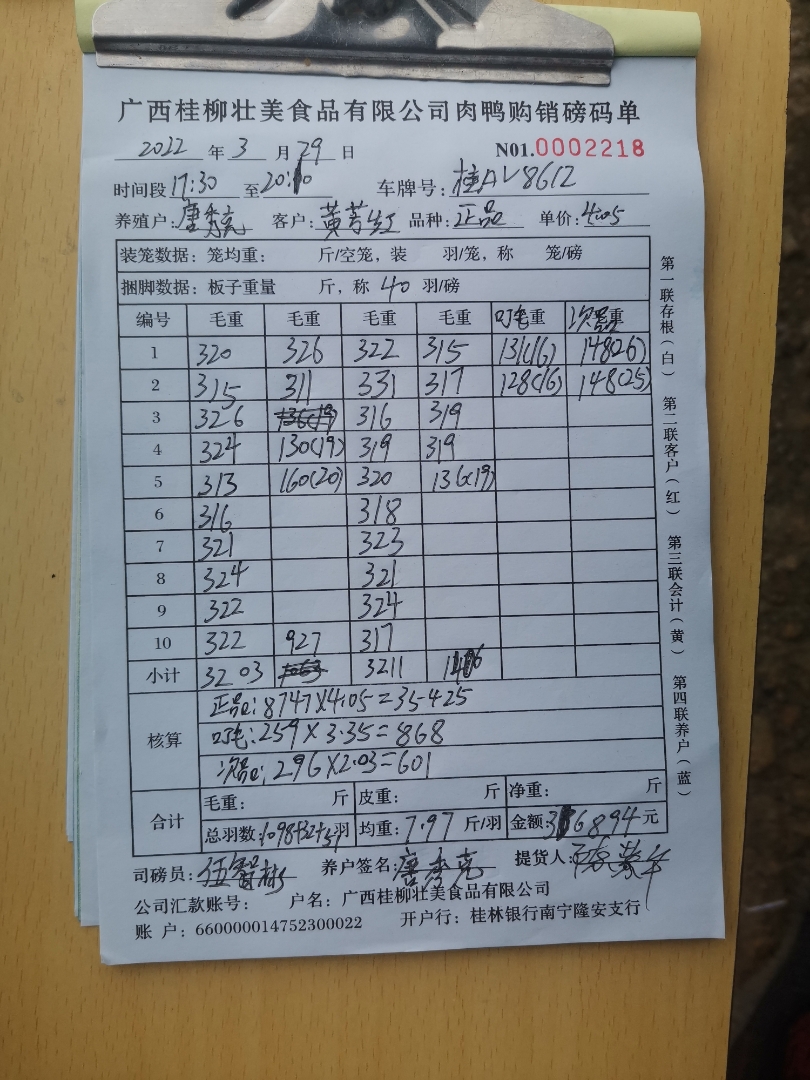 广西桂柳壮美食品有限公司肉鸭购销磅码单
2022 年 3 月 29 日 N01.0002218
时间段 17:30 至 20:10 车牌号: 桂AV8612
养殖户: 唐秀亮 客户: 黄芳红 品种: 正品 单价: 4.05
装笼数据: 笼均重: 斤/空笼, 装 羽/笼, 称 笼/磅
捆脚数据: 板子重量 斤, 称 40 羽/磅
编号 毛重 毛重 毛重 毛重 叮毛重 次品重
1 320 326 322 315 131(16) 148(26)
2 315 311 331 317 128(16) 148(25)
3 326 136(19) 316 319
4 324 130(19) 319 319
5 313 160(20) 320 136(19)
6 316 318
7 321 323
8 324 321
9 322 324
10 322 927 317
小计 3203 3211
核算 正品: 8747×4.05=35425
叮毛: 259×3.35=868
次品: 296×2.03=601
合计 毛重: 斤 皮重: 斤 净重: 斤
总羽数: 1098+32+51羽 均重: 7.97 斤/羽 金额: 36894 元
司磅员: 伍智彬 养户签名: 唐秀亮 提货人:
公司汇款账号: 户名: 广西桂柳壮美食品有限公司
账 户: 660000014752300022 开户行: 桂林银行南宁隆安支行
第一联存根(白) 第二联客户(红) 第三联会计(黄) 第四联养户(蓝)